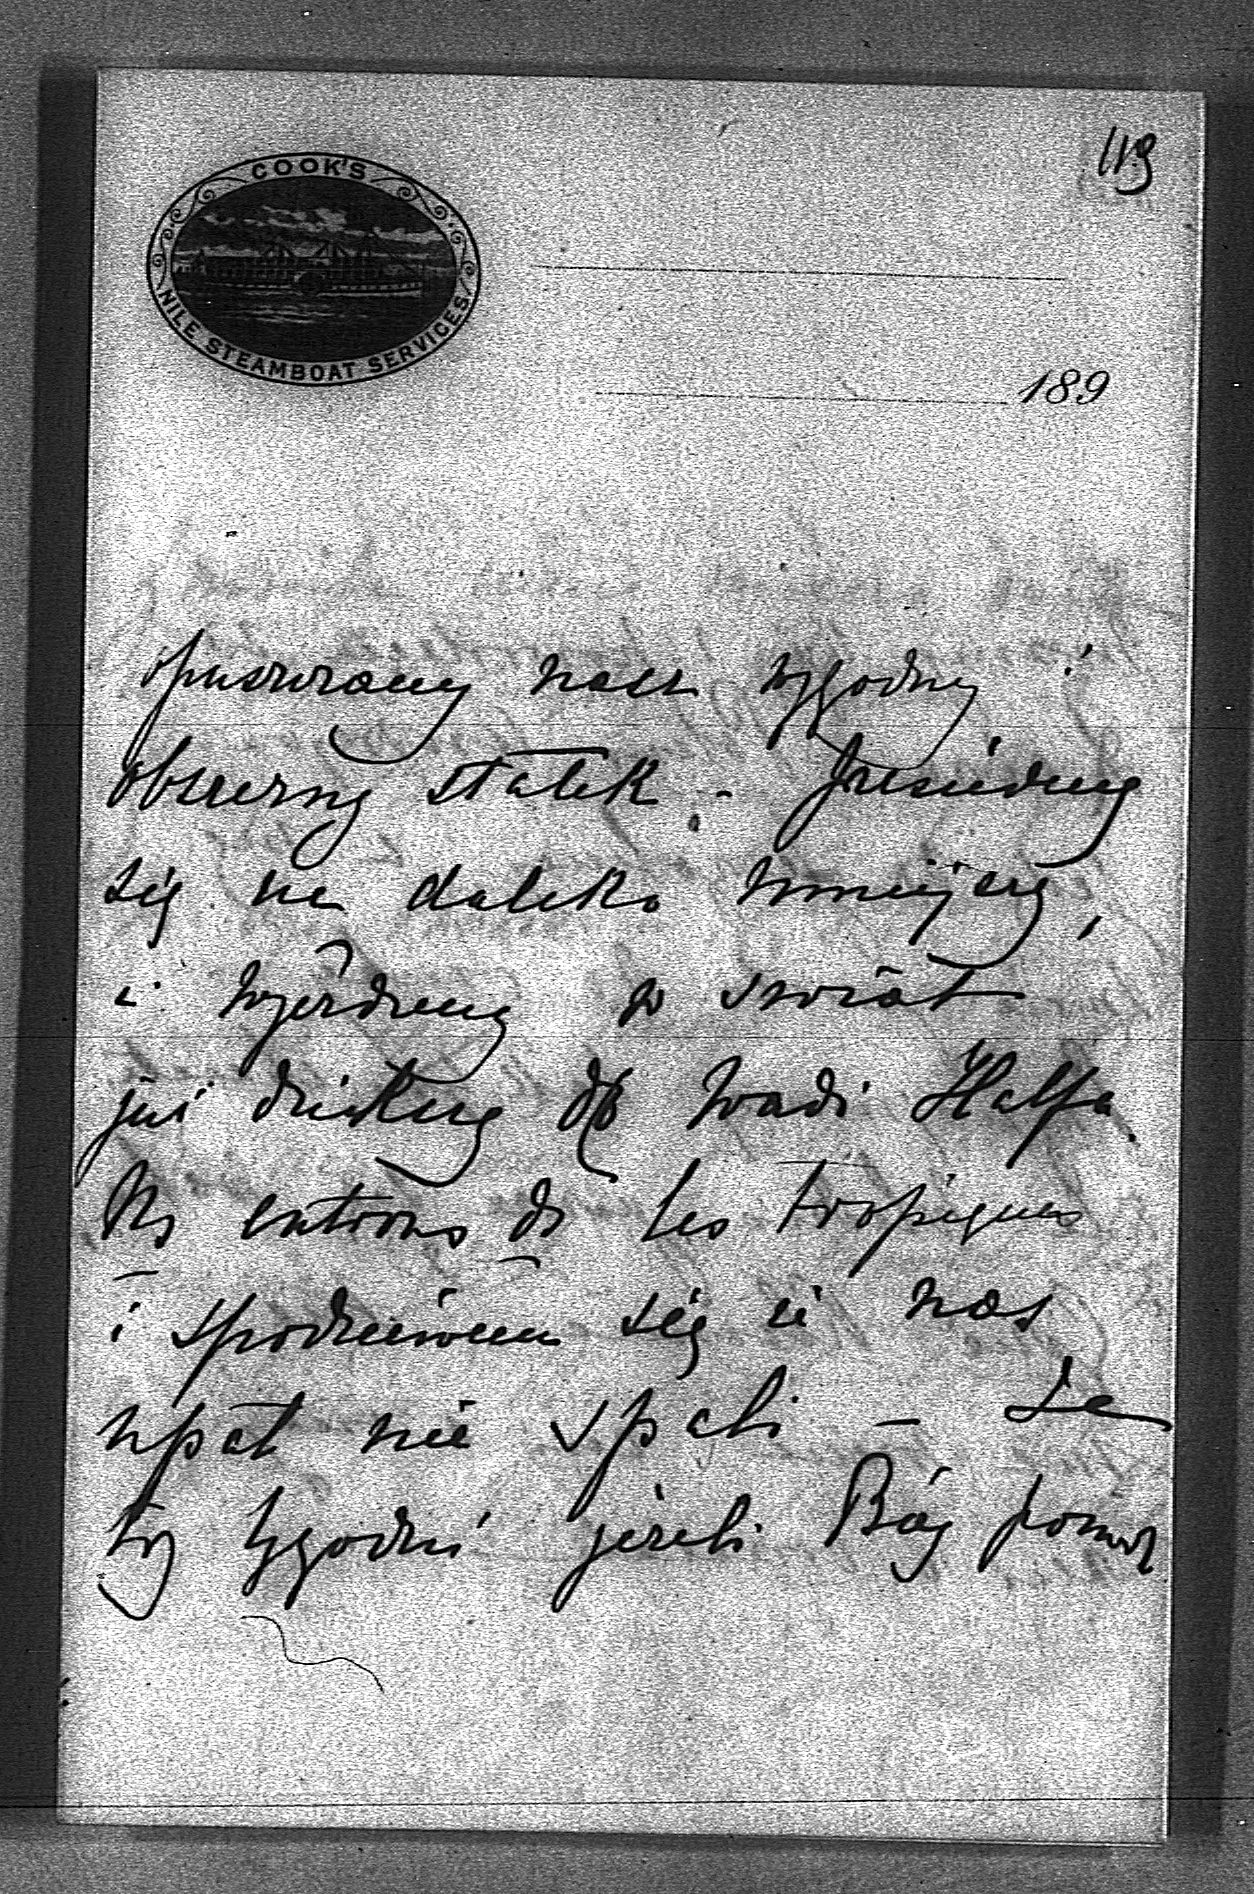 119
COOK'S
NILE STEAMBOAT SERVICES
189
opuszczamy nasz wygodny i
obszerny statek - przesiądziemy
się na daleko mniejszy,
i wjeżdżamy w świat
już dziki do Wadi Halfa.
Ns entrons ds les tropiques
i spodziewam się że nas
upał nie spali - Za
trzy tygodni jeżeli Bóg pomoż